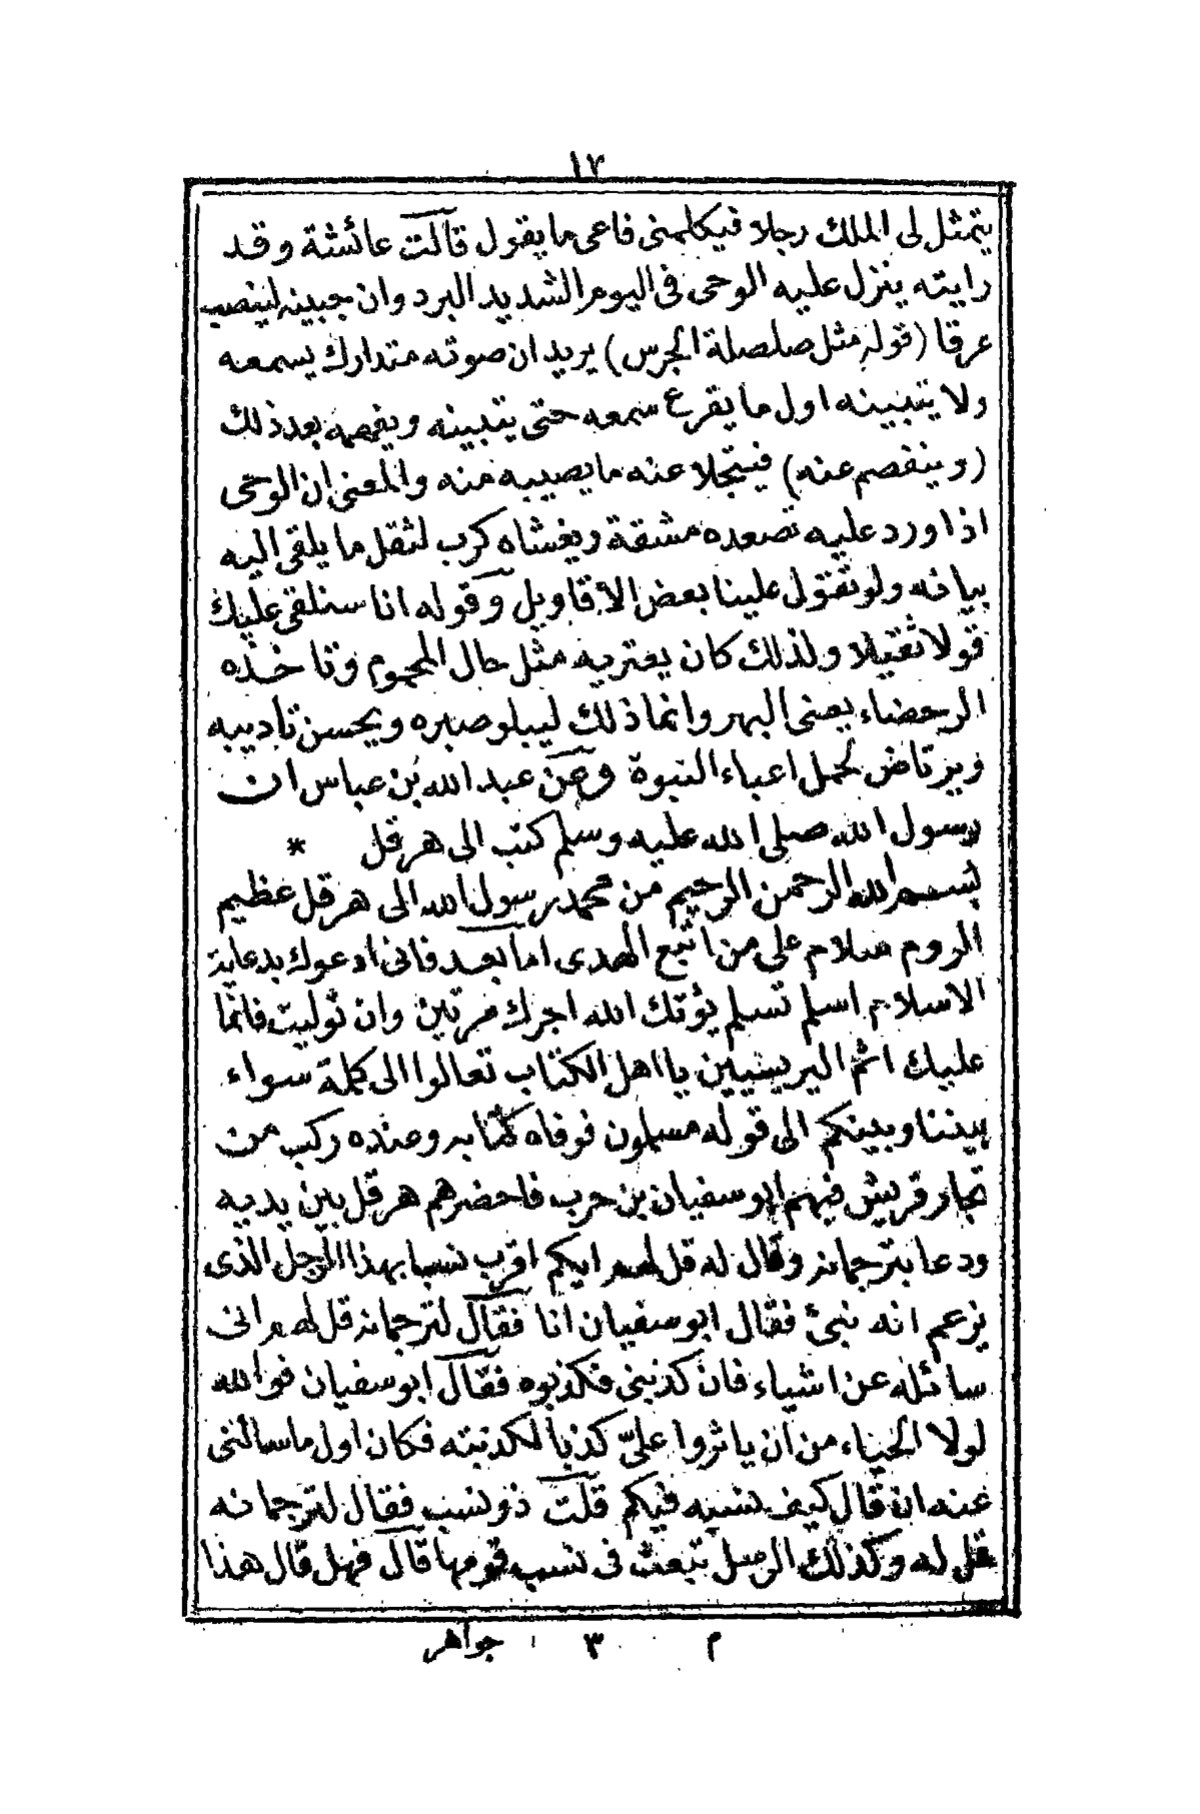 ١٧
يتمثل لى الملك رجلا فيكلمنى فاعى ما يقول قالت عائشة وقد
رايته ينزل عليه الوحى فى اليوم الشديد البرد وان جبينه لينصب
عرقا (قوله مثل صلصلة الجرس) يريد ان صوته متدارك يسمعه
ولا يتبينه اول ما يقرع سمعه حتى يتبينه ويفهمه بعد ذلك
(وينفصم عنه) فيتجلا عنه ما يصيبه منه والمعنى ان الوحى
اذا ورد عليه تصعده مشقة ويغشاه كرب لثقل ما يلقى اليه
بيانه ولو تقول علينا بعض الاقاويل وقوله انا سنلقى عليك
قولا ثقيلا ولذلك كان يعتريه مثل حال المحموم وتاخذه
الرحضاء يعنى البهر وانما ذلك ليبلو صبره ويحسن تاديبه
ويرتاض لحمل اعباء النبوة وعن عبد الله بن عباس ان
رسول الله صلى الله عليه وسلم كتب الى هرقل *
بسم الله الرحمن الرحيم من محمد رسول الله الى هرقل عظيم
الروم سلام على من اتبع الهدى اما بعد فانى ادعوك بدعاية
الاسلام اسلم تسلم يؤتك الله اجرك مرتين وان توليت فانما
عليك اثم اليريسيين يا اهل الكتاب تعالوا الى كلمة سواء
بيننا وبينكم الى قوله مسلمون فوفاه كتابه وعنده ركب من
تجار قريش فيهم ابو سفيان بن حرب فاحضرهم هرقل بين يديه
ودعا بترجمانه وقال له قل لهم ايكم اقرب نسبا بهذا الرجل الذى
يزعم انه نبئ فقال ابو سفيان انا فقال لترجمانه قل لهم انى
سائله عن اشياء فان كذبنى فكذبوه فقال ابو سفيان فوالله
لولا الحياء من ان ياثروا علىّ كذبا لكذبته فكان اول ما سالنى
عنه ان قال كيف نسبه فيكم قلت ذو نسب فقال لترجمانه
قل له وكذلك الرسل تبعث فى نسب قومها قال فهل قال هذا
م ٣ جواهر